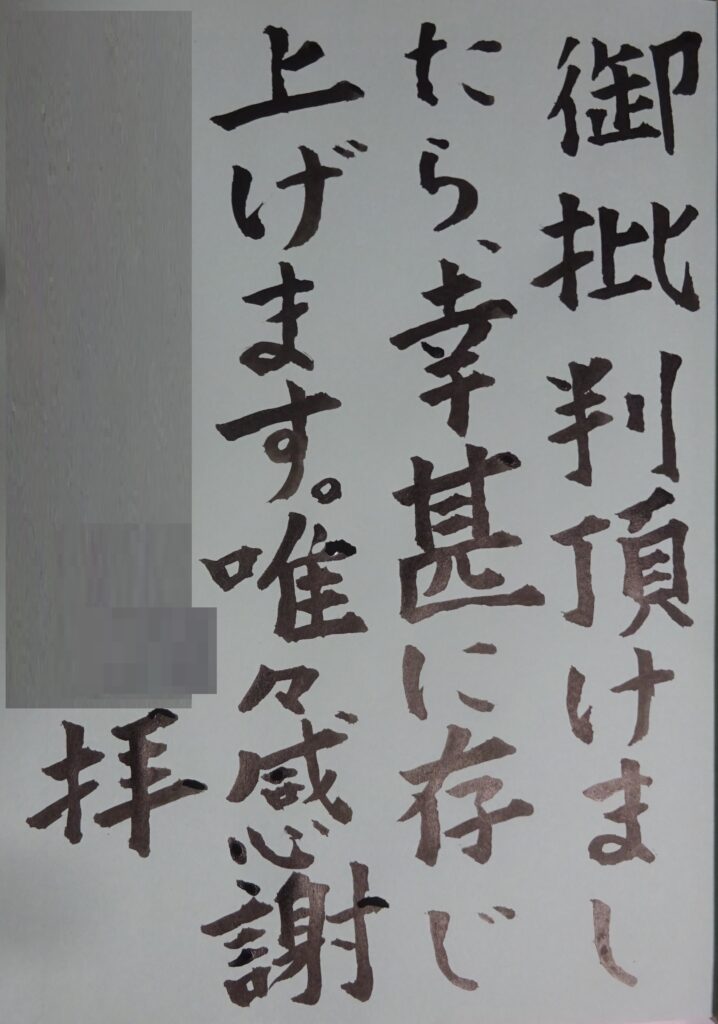 御批判頂けまし
たら、幸甚に存じ
上げます。唯々感謝
拝